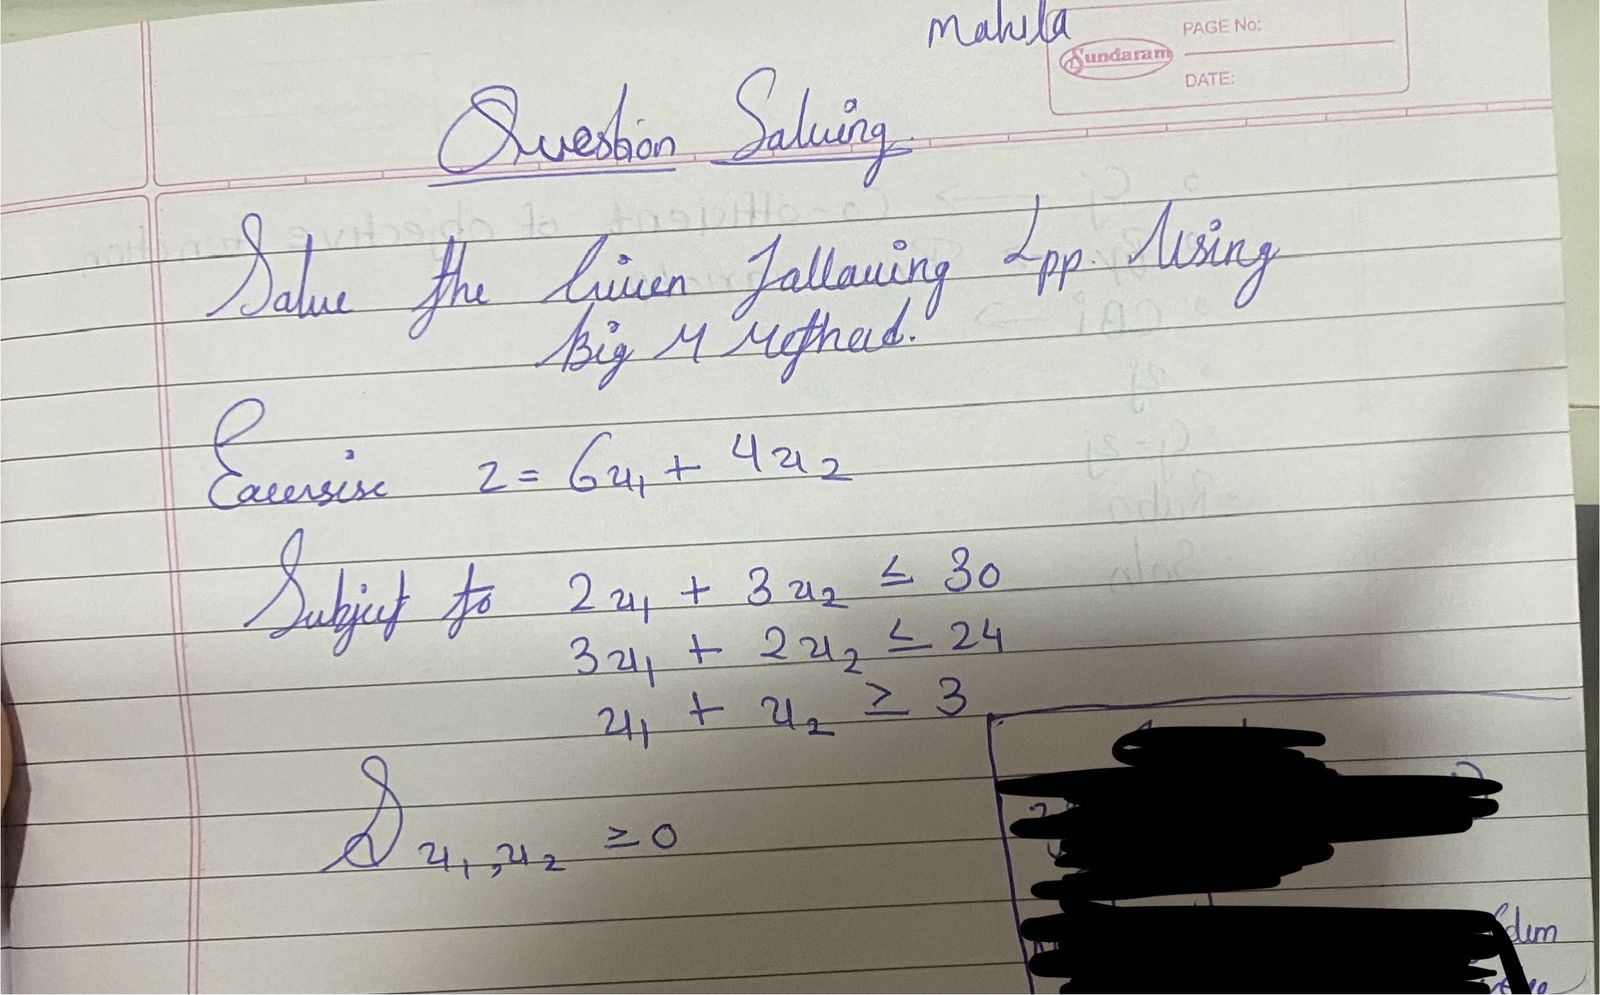 Mahila
Sundaram
PAGE No:
DATE:
Question Saluing
Salue the Given fallawing Lpp. Using
Big M Methad.
Excersise z = 6x₁ + 4x₂
Subject to 2x₁ + 3x₂ ≤ 30
3x₁ + 2x₂ ≤ 24
x₁ + x₂ ≥ 3
& x₁, x₂ ≥ 0